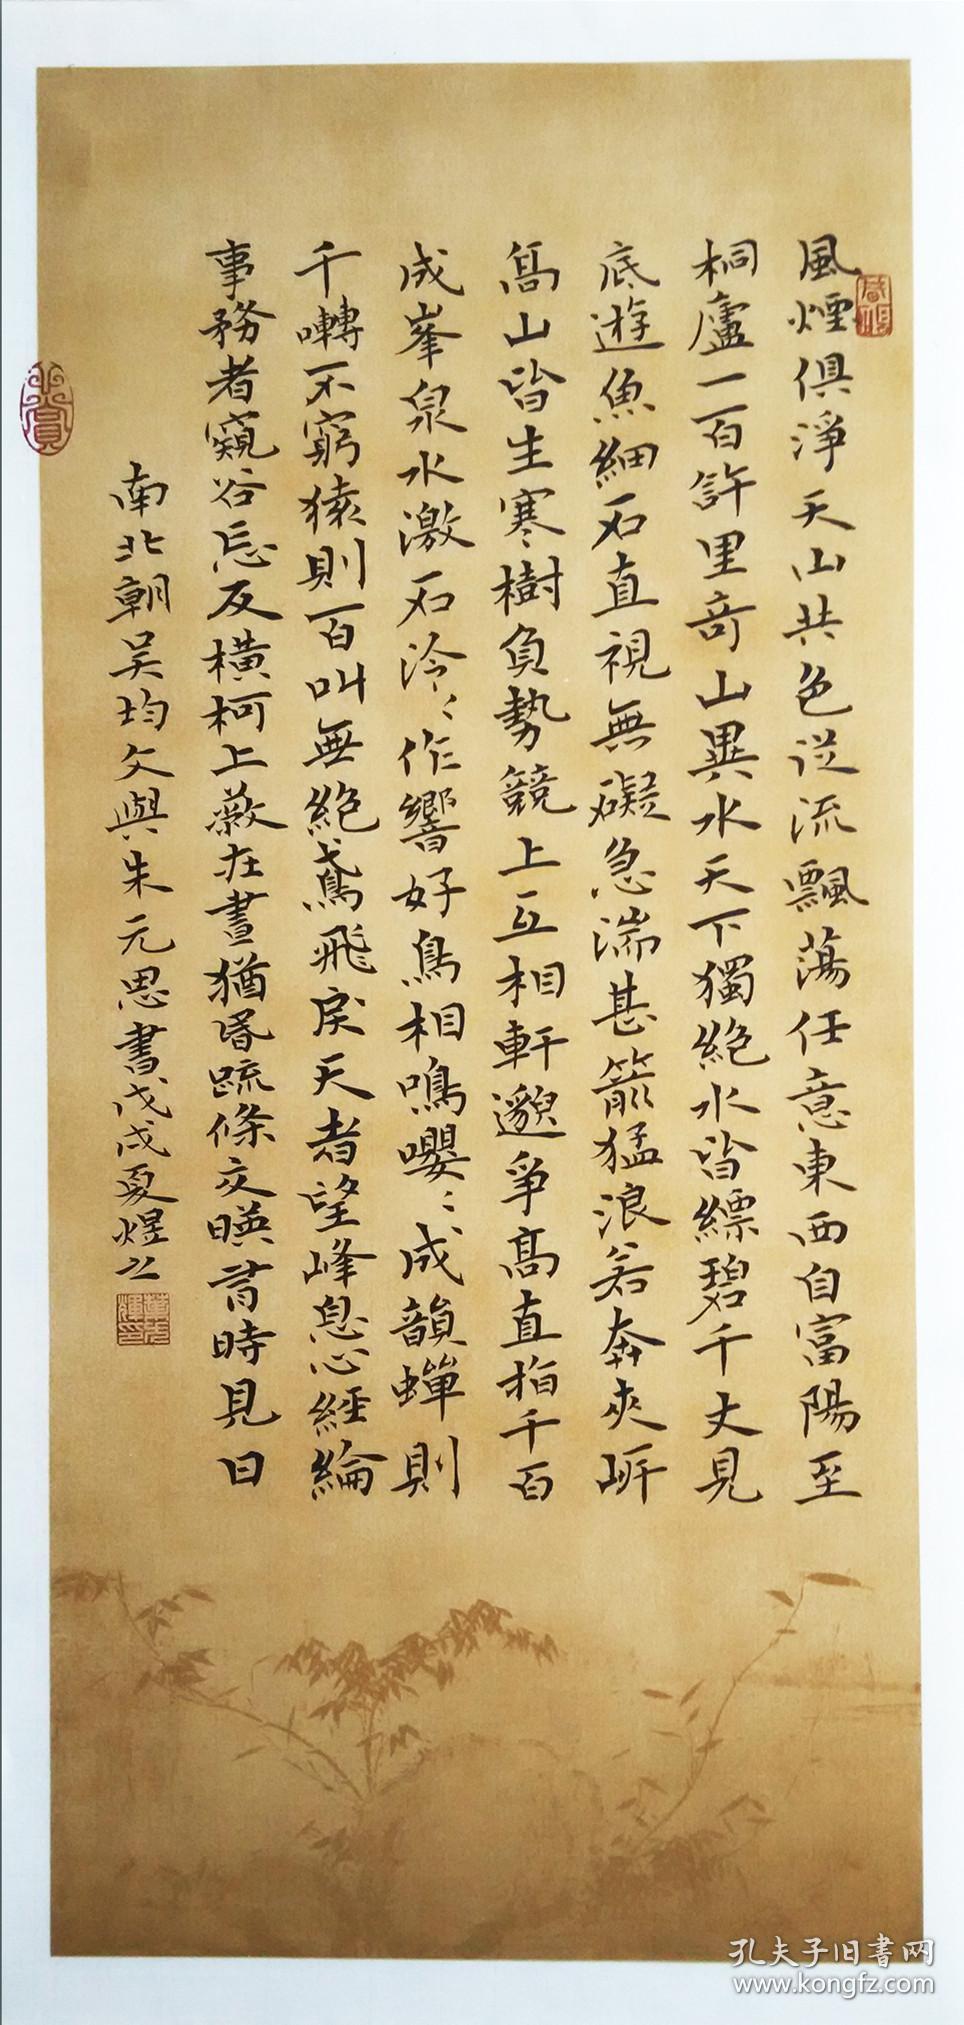 風煙俱淨天山共色從流飄蕩任意東西自富陽至
桐廬一百許里奇山異水天下獨絕水皆縹碧千丈見
底遊魚細石直視無礙急湍甚箭猛浪若奔夾岍
高山皆生寒樹負勢競上互相軒邈爭高直指千百
成峯泉水激石泠〻作響好鳥相鳴嚶〻成韻蟬則
千囀不窮猿則百叫無絕鳶飛戾天者望峰息心經綸
事務者窺谷忘反橫柯上蔽在晝猶昏疏條交暎有時見日
南北朝吳均文與朱元思書戊戌夏煜之
孔夫子旧書网
www.kongfz.com